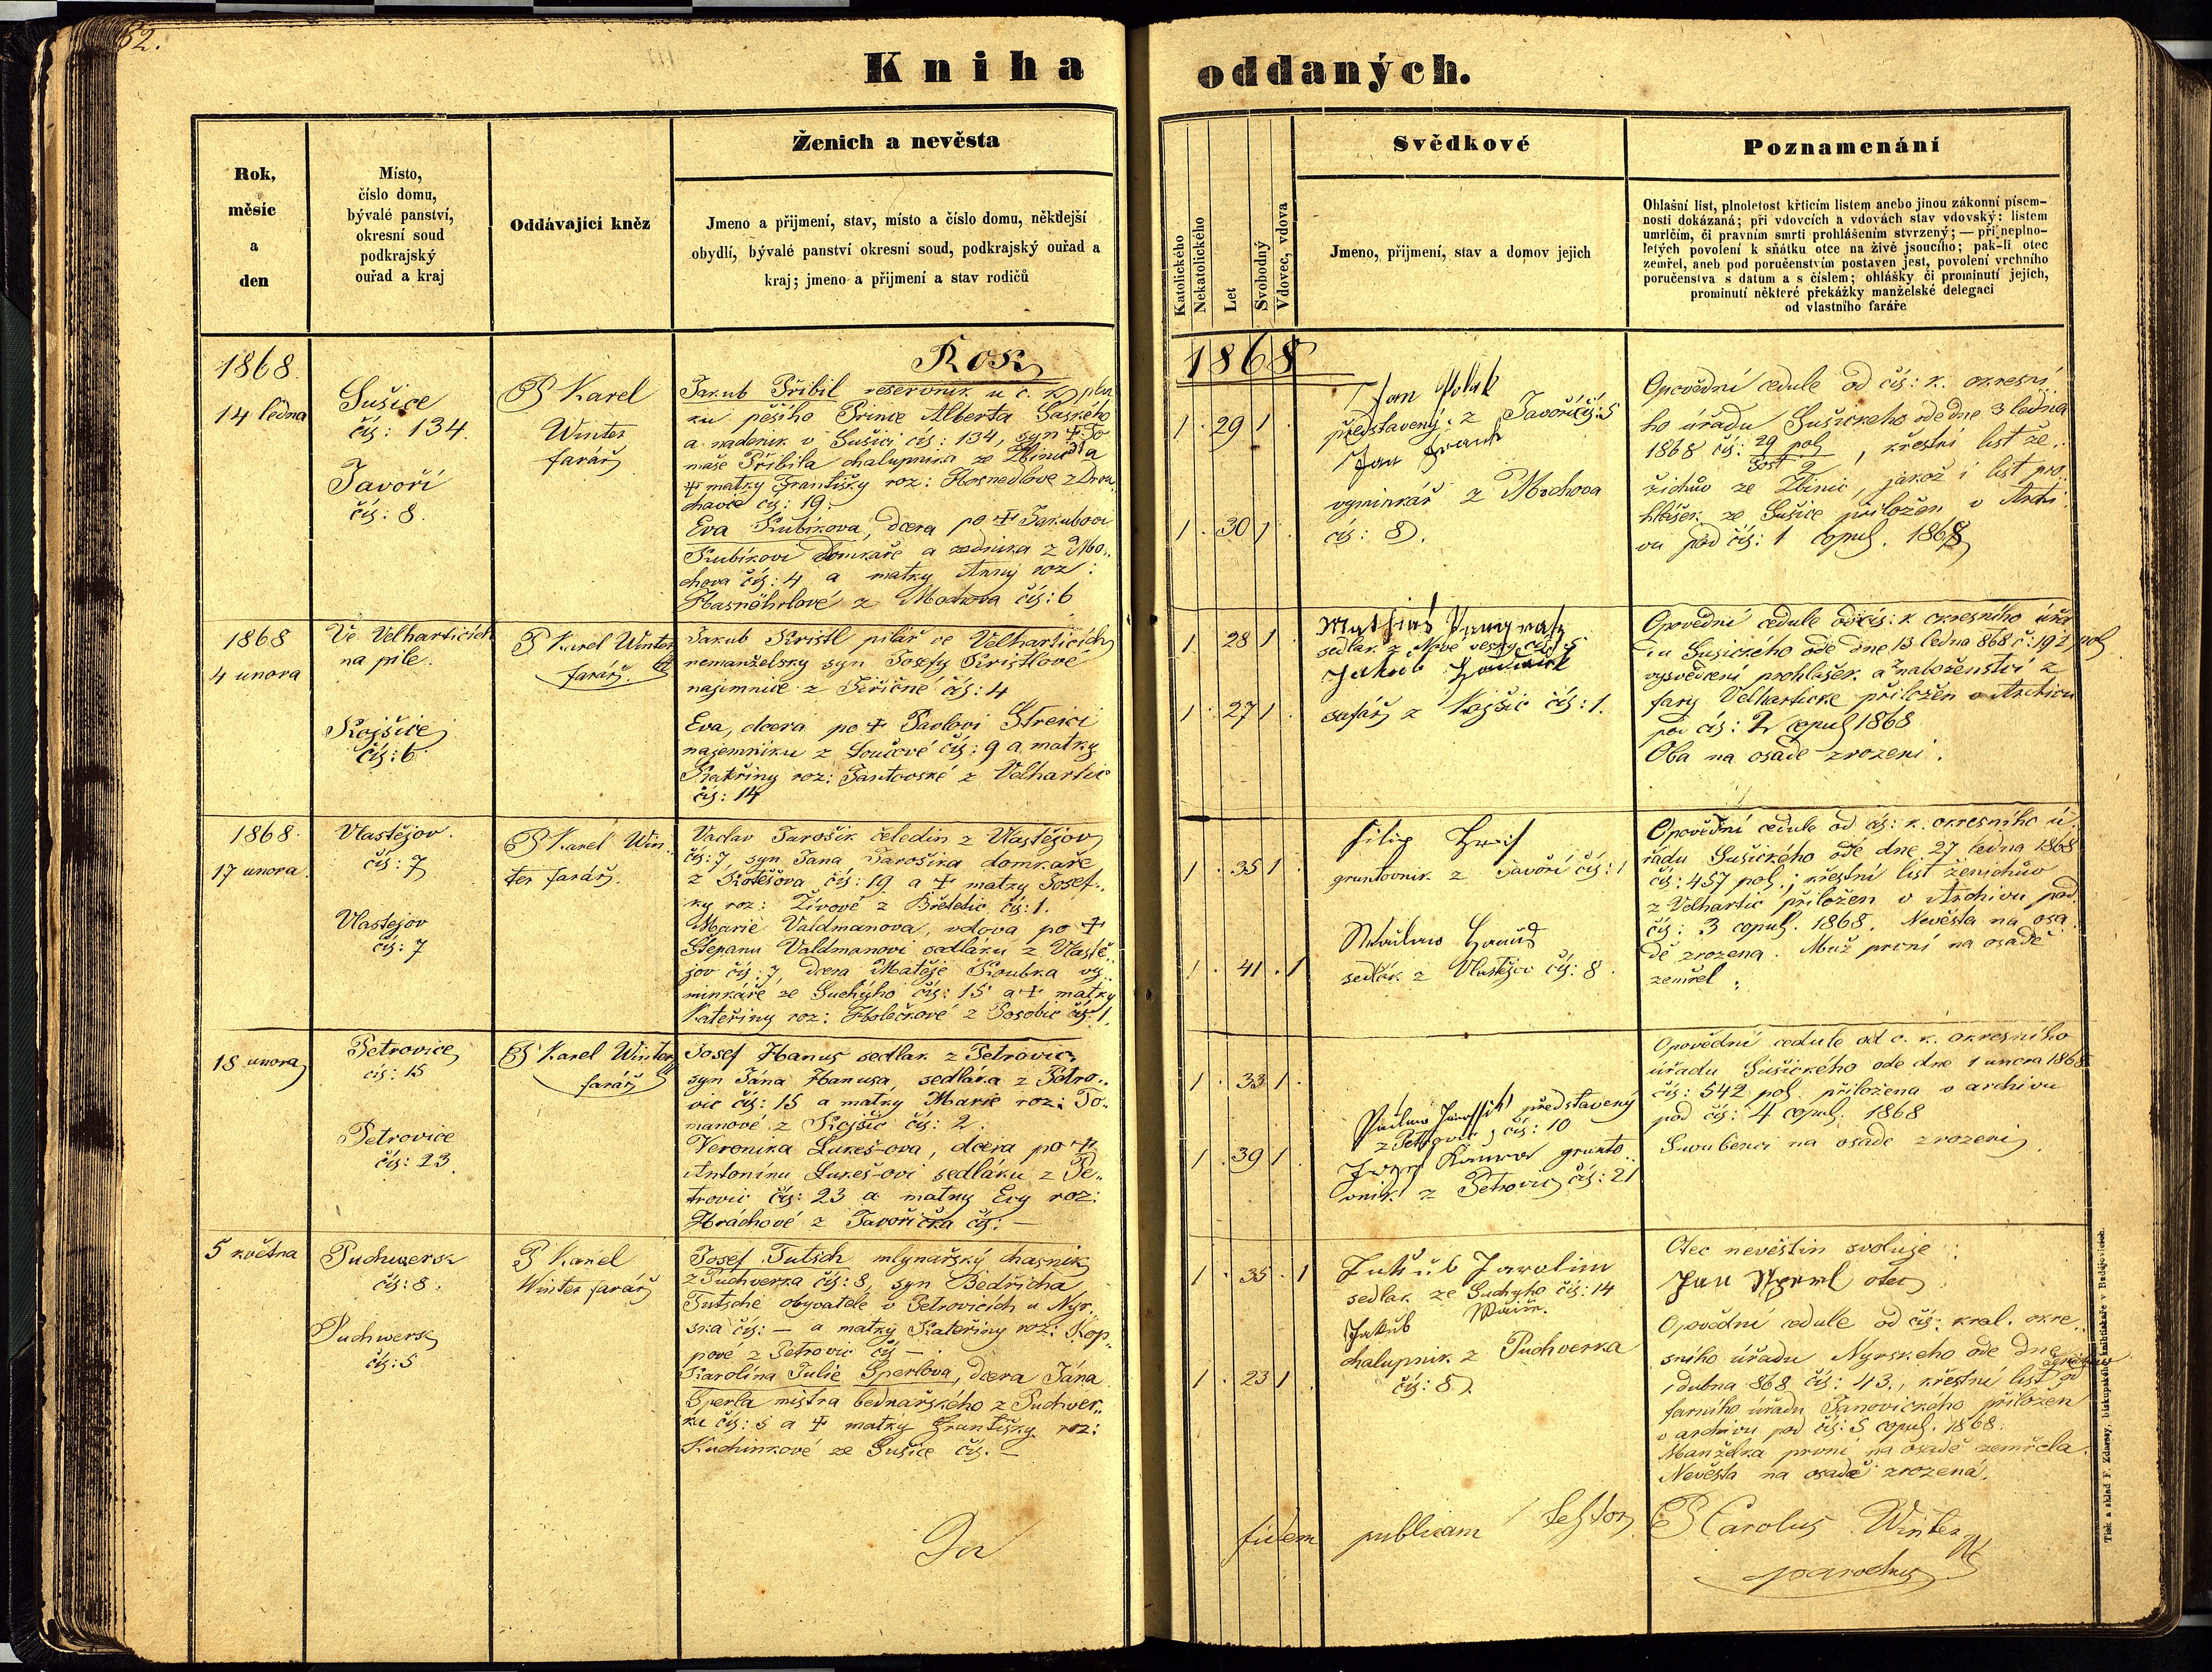 62.
Kniha oddaných.
Rok,
měsíc
a
den
Místo,
číslo domu,
bývalé panství,
okresní soud
podkrajský
ouřad a kraj
Oddávající kněz
Ženich a nevěsta
Jmeno a příjmení, stav, místo a číslo domu, někdejší
obydlí, bývalé panství okresní soud, podkrajský ouřad a
kraj; jmeno a příjmení a stav rodičů
Katolického
Nekatolického
Let
Svobodný
Vdovec, vdova
Svědkové
Jmeno, příjmení, stav a domov jejich
Poznamenání
Ohlašní list, plnoletost křticím listem anebo jinou zákonní písem-
nosti dokázaná; při vdovcích a vdovách stav vdovský: listem
umrlčím, či pravním smrti prohlášením stvrzený; — při neplno-
letých povolení k sňátku otce na živě jsoucího; pak-li otec
zemřel, aneb pod poručenstvím postaven jest, povolení vrchního
poručenstva s datum a s číslem; ohlášky či prominutí jejich,
prominutí některé překážky manželské delegací
od vlastního faráře
Rok 1868
1868.
14 ledna
Sušice
čís: 134.
Javoří
čís: 8.
P Karel
Winter
farář
Jakub Přibil reservník u c. k. plu
ku pěšího Prince Alberta Saského
a nadenik v Sušici čís: 134, syn † To
maše Přibila chalupnika ze Zbinic a
† matky Františky roz: Hosnedlove z Dru
chavic čís: 19.
Eva Kubikova, dcera po † Jakubovi
Kubikovi domkaře a zednika z Mo„
chova čís: 4 a matky Anny roz:
z Mochova čís: 6
1 29 1
1 30 1
Jan Polak
představený z Javoří čís: 5
Jan
vyminkář z Mochova
čís: 8.
Opovědní cedule od cís: k. okresní
ho úřadu Sušického ode dne 3 ledna
1868 čís: 29 pol, křestní list že„
nichův ze Zbinic, jakož i list pro„
hlášek ze Sušice přiložen v Archi
vu pod čís: 1 copul. 1868
1868
4 unora
Ve Velharticích
na pile.
Kojšice
čís: 6
P Karel Winter
farář.
Jakub Kristl pilař ve Velharticích
nemanželsky syn Josefy Kristlové
najemnice z Jiřičné čís: 4
Eva, dcera po † Pavlovi
najemniku z Loučové čís: 9 a matky
Kateřiny roz: z Velhartic
čís: 14
1 28 1
1 27 1
sedlak z Nové vesky čís: 5
Jakub
safář z Kojšic čís: 1.
Opovědní cedule od cís: k okresního úřa
du Sušického ode dne 13 ledna 868 č: 192 pol
vysvědčení prohlášek a náboženství z
fary Velhartické přiložen v Archivu
pod čís: 2 copul 1868
Oba na osadě zrozeni.
1868.
17 unora
Vlastějov.
čís: 7
Vlastejov
čís: 7
P Karel Win„
ter farář.
Vaclav Jarošik čeledin z Vlastějov
čís: 7, syn Jana Jarošika domkaře
z Kotěšova čís: 19 a † matky Josef„
ky roz: Živové z Břetetic čís: 1.
Marie Valdmanova, vdova po †
Štepanu Valdmanovi sedlaku z Vlastě„
jov čís: 7, dcera Matěje Koubka vy„
minkáře ze Suchýho čís: 15 a † matky
Kateřiny roz: Holečkové z Posobic čís: 1.
1 35 1
1 41 1
Filip
gruntovnik z Javoří čís: 1
sedlák z Vlastějov čís: 8.
Opovědní cedule od cís: k. okresního ú„
řadu Sušického ode dne 27 ledna 1868
čís: 457 pol.; křestní list ženichův
z Velhartic přiložen v Archivu pod
čís: 3 copul. 1868. Nevěsta na osa
dě zrozena. Muž první na osadě
zemřel.
18 unora
Petrovice
čís: 15
Petrovice
čís: 23.
P Karel Winter
farář
Josef Hanus sedlak z Petrovic,
syn Jána Hanusa, sedláka z Petro„
vic čís: 15 a matky Marie roz: To„
manové z Kojšic čís: 2.
Veronika Lukeš-ova, dcera po †
Antoninu Lukeš-ovi sedláku z Pe„
trovic čís: 23 a matky Evy roz:
Hráchové z Javořička čís: —
1 33 1
1 39 1
představený
z Petrovic, čís: 10
grunto„
vnik z Petrovic čís: 21
Opovědní cedule od c. k. okresního
úřadu Sušického ode dne 1 unora 1868
čís: 542 pol. přiložena v archivu
pod čís: 4 copul. 1868
Snoubenci na osadě zrozeni
5 května
Puchwerk
čís: 8.
Puchwerk
čís: 5
P Karel
Winter farář
Josef Tutsch mlynařský chasnik
z Puchverka čís: 8, syn Bedřicha
Tutsche obyvatele v Petrovicích u Nyr„
ska čís: — a matky Kateřiny roz: Kop„
pové z Petrovic čís —.
Karolina Julie Sperlova, dcera Jána
Sperla mistra bednařského z Puchver„
ku čís: 5 a † matky Františky roz:
Kuchinkové ze Sušice čís. —
1 35 1
1 23 1
Jakub Jarolim
sedlak ze Suchyho čís: 14
Jakub
chalupnik z Puchverka
čís: 8.
Otec nevěstin svoluje:
Jan Sperl otec
Opovědní cedule od cís: kral. okre„
sního úřadu Nyrskeho ode dne
1 dubna 868 čís: 43., křestní list ženichův od
farního úřadu Janovického přiložen
v archivu pod čís: 5 copul. 1868.
Manželka první na osadě zemřela.
Nevěsta na osadě zrozená.
In fidem publicam testor P Carolus Winter
parochus
Tisk a sklad F. Zdarssy, biskupského knihtiskaře v Budějovicích.